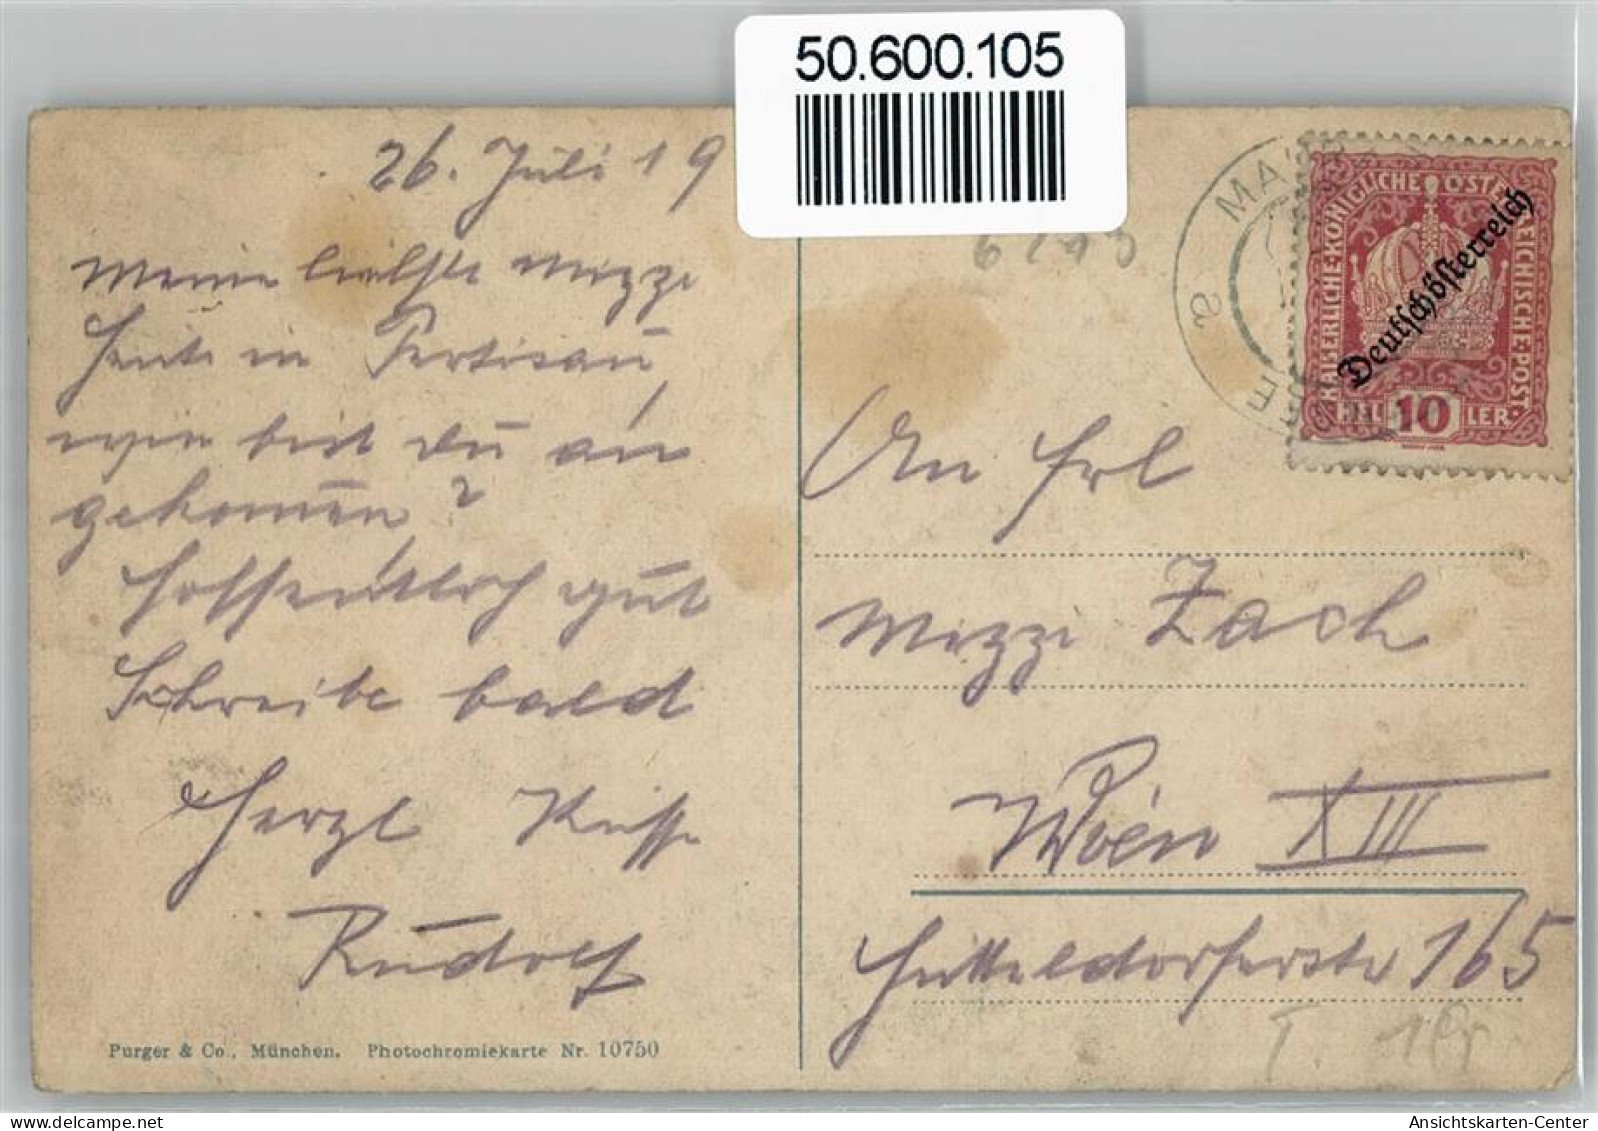 50.600.105
26. Juli 19
Meine liebste Mizzi
Heute in Pertisau,
wie bist du an
gekommen?
Hoffentlich gut
Schreibe bald
Herzl Küsse
Rudolf
Purger & Co., München. Photochromiekarte Nr. 10750
KAISERLICHE·KÖNIGLICHE ÖSTERREICHISCHE·POST
Deutschösterreich
10
HELLER
MA
a
E
An Frl
Mizzi Zach
Wien XIII
Hütteldorferstr 165
Ansichtskarten-Center